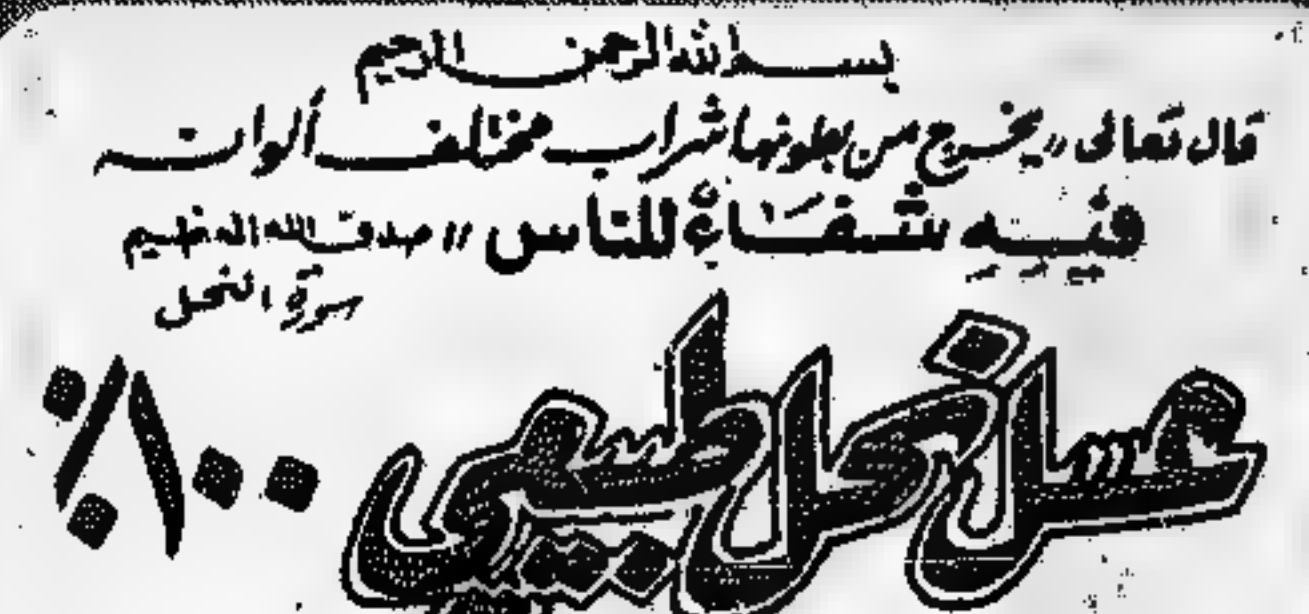 بسم الله الرحمن الرحيم
قال تعالى "يخرج من بطونها شراب مختلف ألوانه
فِيهِ شِفَاءٌ لِلنَّاسِ" صدق الله العظيم
سورة النحل
عسل نحل طبيعي ١٠٠٪